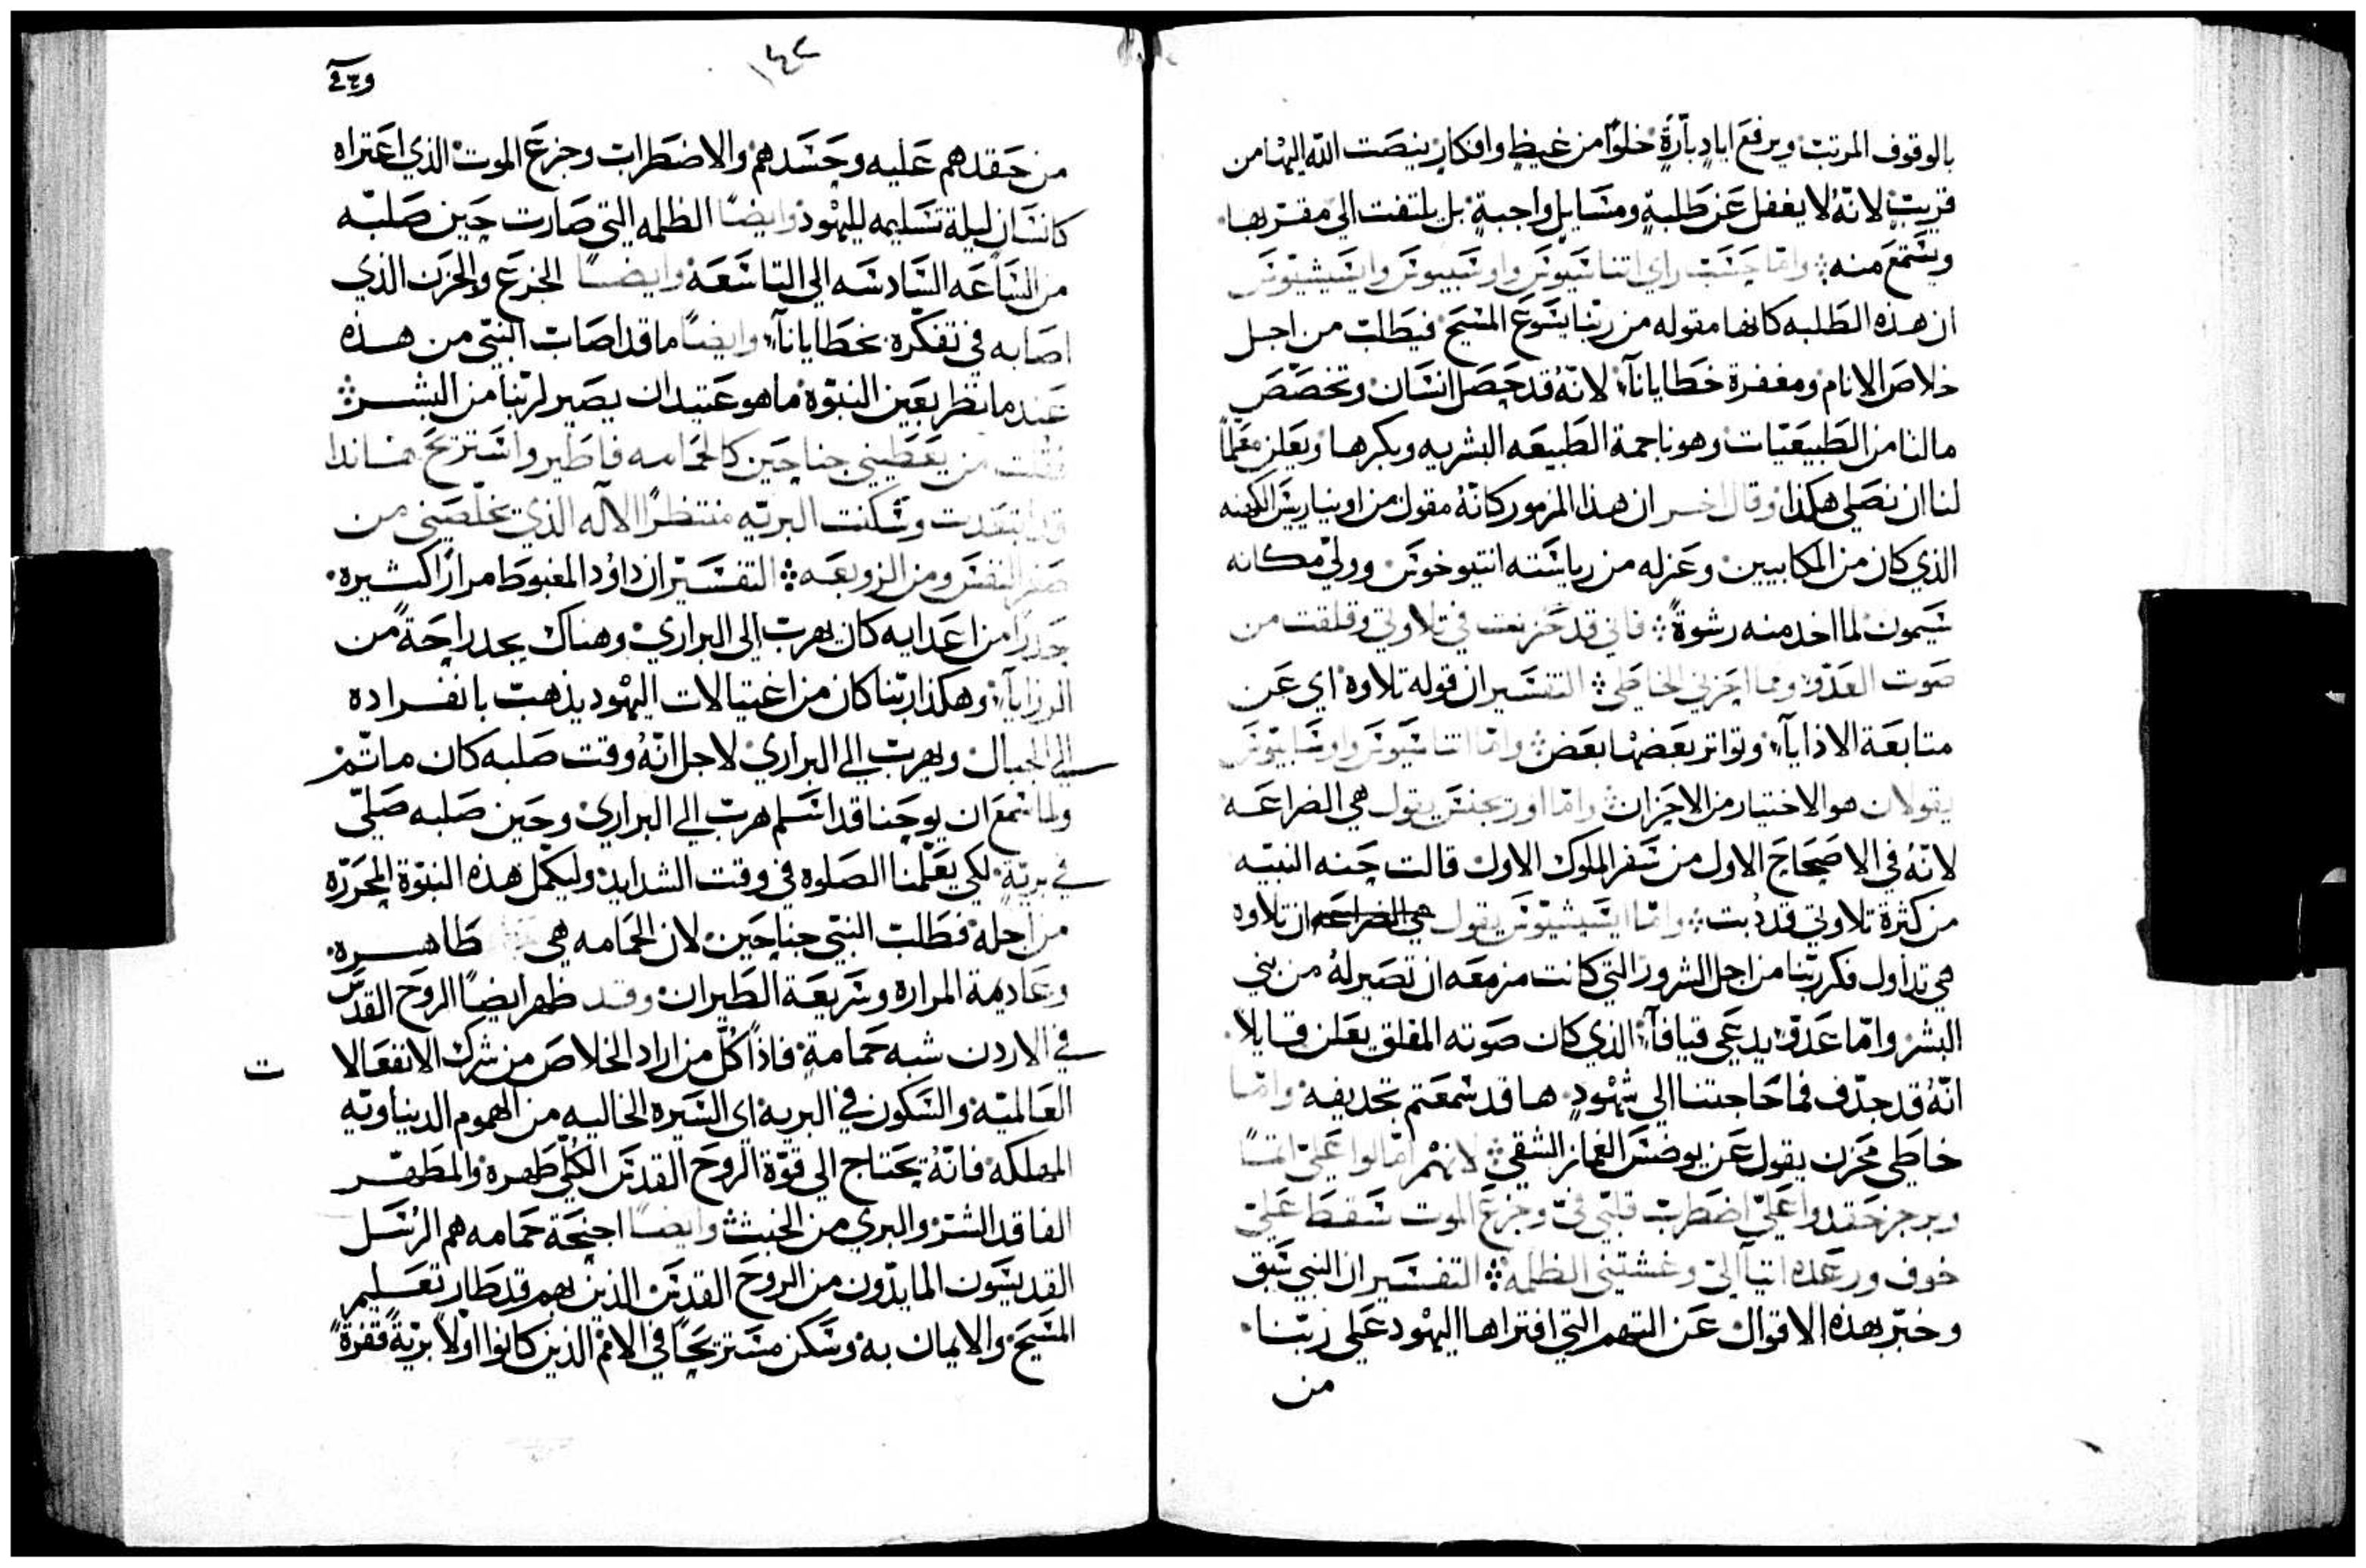 بالوقوف المرتب ويرفع ايادٍ بآرةٍ خلوًا من غيظٍ وافكارٍ ينصت الله اليها من
قريبٍ لانهُ لا يغفل عن طلبةٍ ومسايلٍ واجبةٍ بل يلتفت الى مقتربها
ويستمع منه واما حسب راي اتناسيوس واوسبيوس وايسيشيوس
ان هذه الطلبه كانها مقوله من ربنا يسوع المسيح فيطلب من اجل
خلاص الانام ومغفرة خطايانا لانهُ قد حصل انسان وتخصص
مالنا من الطبيعيات وهو ناجمة الطبيعه البشريه وبكرها ويعلن معلمًا
لنا ان نصلي هكذا وقال اخر ان هذا المزمور كانهُ مقول من اونيا ريس الكهنه
الذي كان من المكابيين وعزله من رياسته انتيوخوس وولي مكانه
سيمون لما اخد منه رشوةً فاني قد حزنت في تلاوتي وقلقت من
صوت العدو ومما احزني الخاطي التفسير ان قوله تلاوة اي عن
متابعة الاذايا وتواتر بعضها بعض واما اتناسيوس واوسابيوس
يقولان هو الاختيار من الاحزان واما اوريجنس يقول هي الضراعه
لانهُ في الاصحاح الاول من سفر الملوك الاول قالت حنه النبيه
من كثرة تلاوتي قد دبت واما ايسيشيوس يقول هي الضراعه ان تلاوه
هي تداول فكر ربنا من اجل الشرور التي كانت مزمعه ان تصير لهُ من بني
البشر واما عدو يدعى قيافا الذي كان صوته المقلق يعلن قايلاً
انهُ قد جدف فما حاجتنا الى شهودٍ ها قد سمعتم تجديفه واما
خاطي محزن يقول عن يوضس الغماز الشقي لانهم امالوا عليّ اثمًا
وبرجز حقدوا عليّ اضطرب قلبي فيّ وجزع الموت سقط عليّ
خوف ورعده اتيا اليّ وغشتني الظلمة التفسير ان النبي سبق
وخبر بهذه الاقوال عن التهم التي افتراها اليهود على ربنا
من
١٤٢
من حقدهم عليه وحسدهم والاضطراب وجزع الموت الذي اعتراه
كانسان ليلة تسليمه لليهود وايضًا الظلمه التي صارت حين صلبه
من الساعه السادسه الى التاسعة وايضًا الجزع والحزن الذي
اصابه في تفكره بخطايانا وايضًا ما قد اصاب النبي من هذه
عندما نظر بعين النبوة ما هو عتيد ان يصير لربنا من البشر
فقلت من يعطيني جناحين كالحمامه فاطير واستريح هانذا
قد ابتعدت وسكنت البريه منتظرًا الاله الذي يخلصني من
صغر النفس ومن الزوبعه التفسير ان داوُد المغبوط مرارًا كثيره
حدرًا من اعدايه كان يهرب الى البراري وهناك يجد راحةً من
الرزايا وهكذا ربنا كان من اغتيالات اليهود يذهب بانفراده
الى الجبال ويهرب الى البراري لاجل انهُ وقت صلبه كان ما تم
ولما سمع ان يوحنا قد اسلم هرب الى البراري وحين صلبه صلى
في بريّة لكي يعلمنا الصلوه في وقت الشدايد وليكمل هذه النبوة المحررة
من اجله فطلب النبي جناحين لان الحمامه هي طاهره
وعادمة المرارة وسريعة الطيران وقد ظهر ايضًا الروح القدس
في الاردن شبه حمامةٍ فاذًا كلّ من اراد الخلاص من شرك الانفعالا
ت
العالميّه والسكون في البريه اي السيره الخاليه من الهموم الديناويه
المهلكه فانهُ يحتاج الى قوة الروح القدس الكلي طهره والمطهر
الفاقد الشر والبري من الخبث وايضًا اجنحة حمامه هم الرسل
القديسون المايدون من الروح القدس الذين بهم قد طار تعليم
المسيح والايمان به وسكن مستريحًا في الامم الذين كانوا اولاً بريةً قفرةً